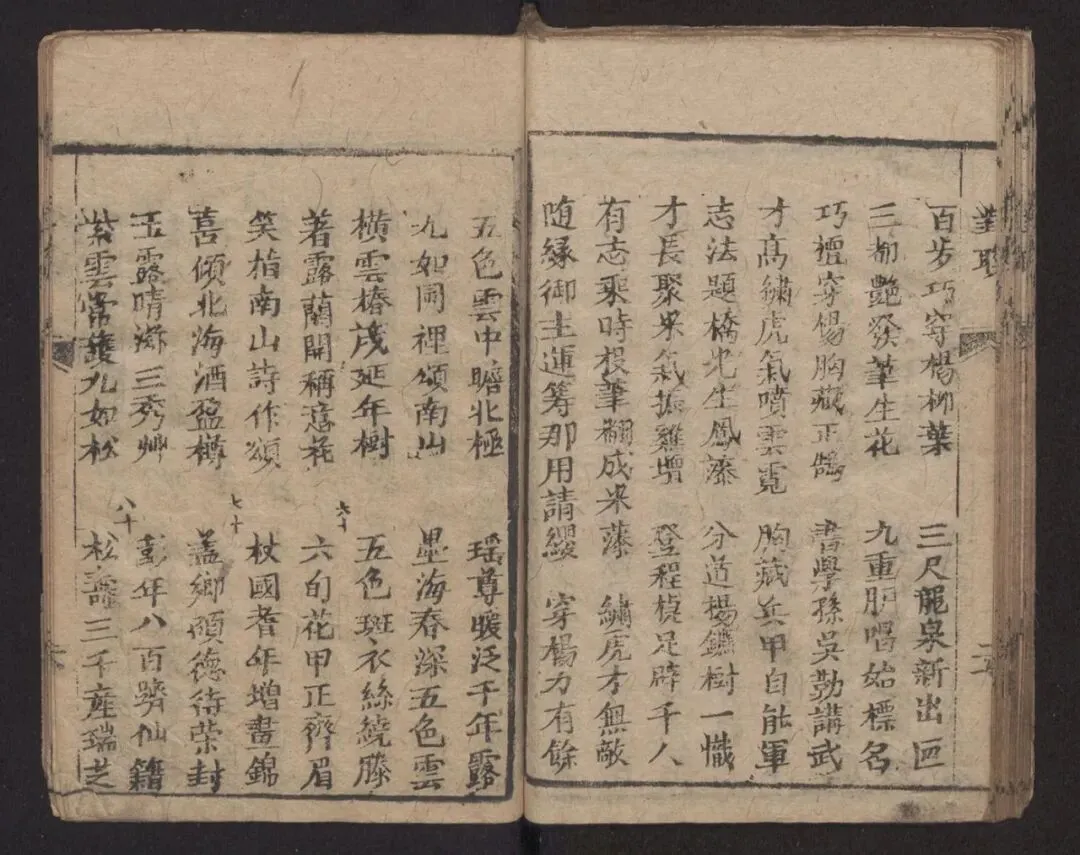 對聯
二
百步巧穿楊柳葉 三尺龍泉新出匣
三都艷發筆生花 九重胪唱始標名
巧擅穿楊胸藏正鵠 書學孫吳勤講武
才髙繡虎氣噴雲霓 胸藏兵甲自能軍
志法題橋光生鳳藻 分道楊鑣樹一幟
才長聚米氣振雞壇 登程楨足辟千人
有志乘時投筆翻成采藻 繡虎才無敵
随緣御主運筹那用請纓 穿楊力有餘
五色雲中瞻北極 瑶尊暖泛千年露
九如圖裡頌南山 墨海春深五色雲
橫雲椿茂延年樹 五色斑衣絲繞膝
六十
著露蘭開稱意花 六旬花甲正齊眉
笑指南山詩作頌 杖國耆年增畫錦
七十
喜傾北海酒盈樽 盖鄉頤德待荣封
玉露晴滋三秀艸 彭年八百躋仙籍
八十
紫雲常護九如松 松壽三千產瑞芝